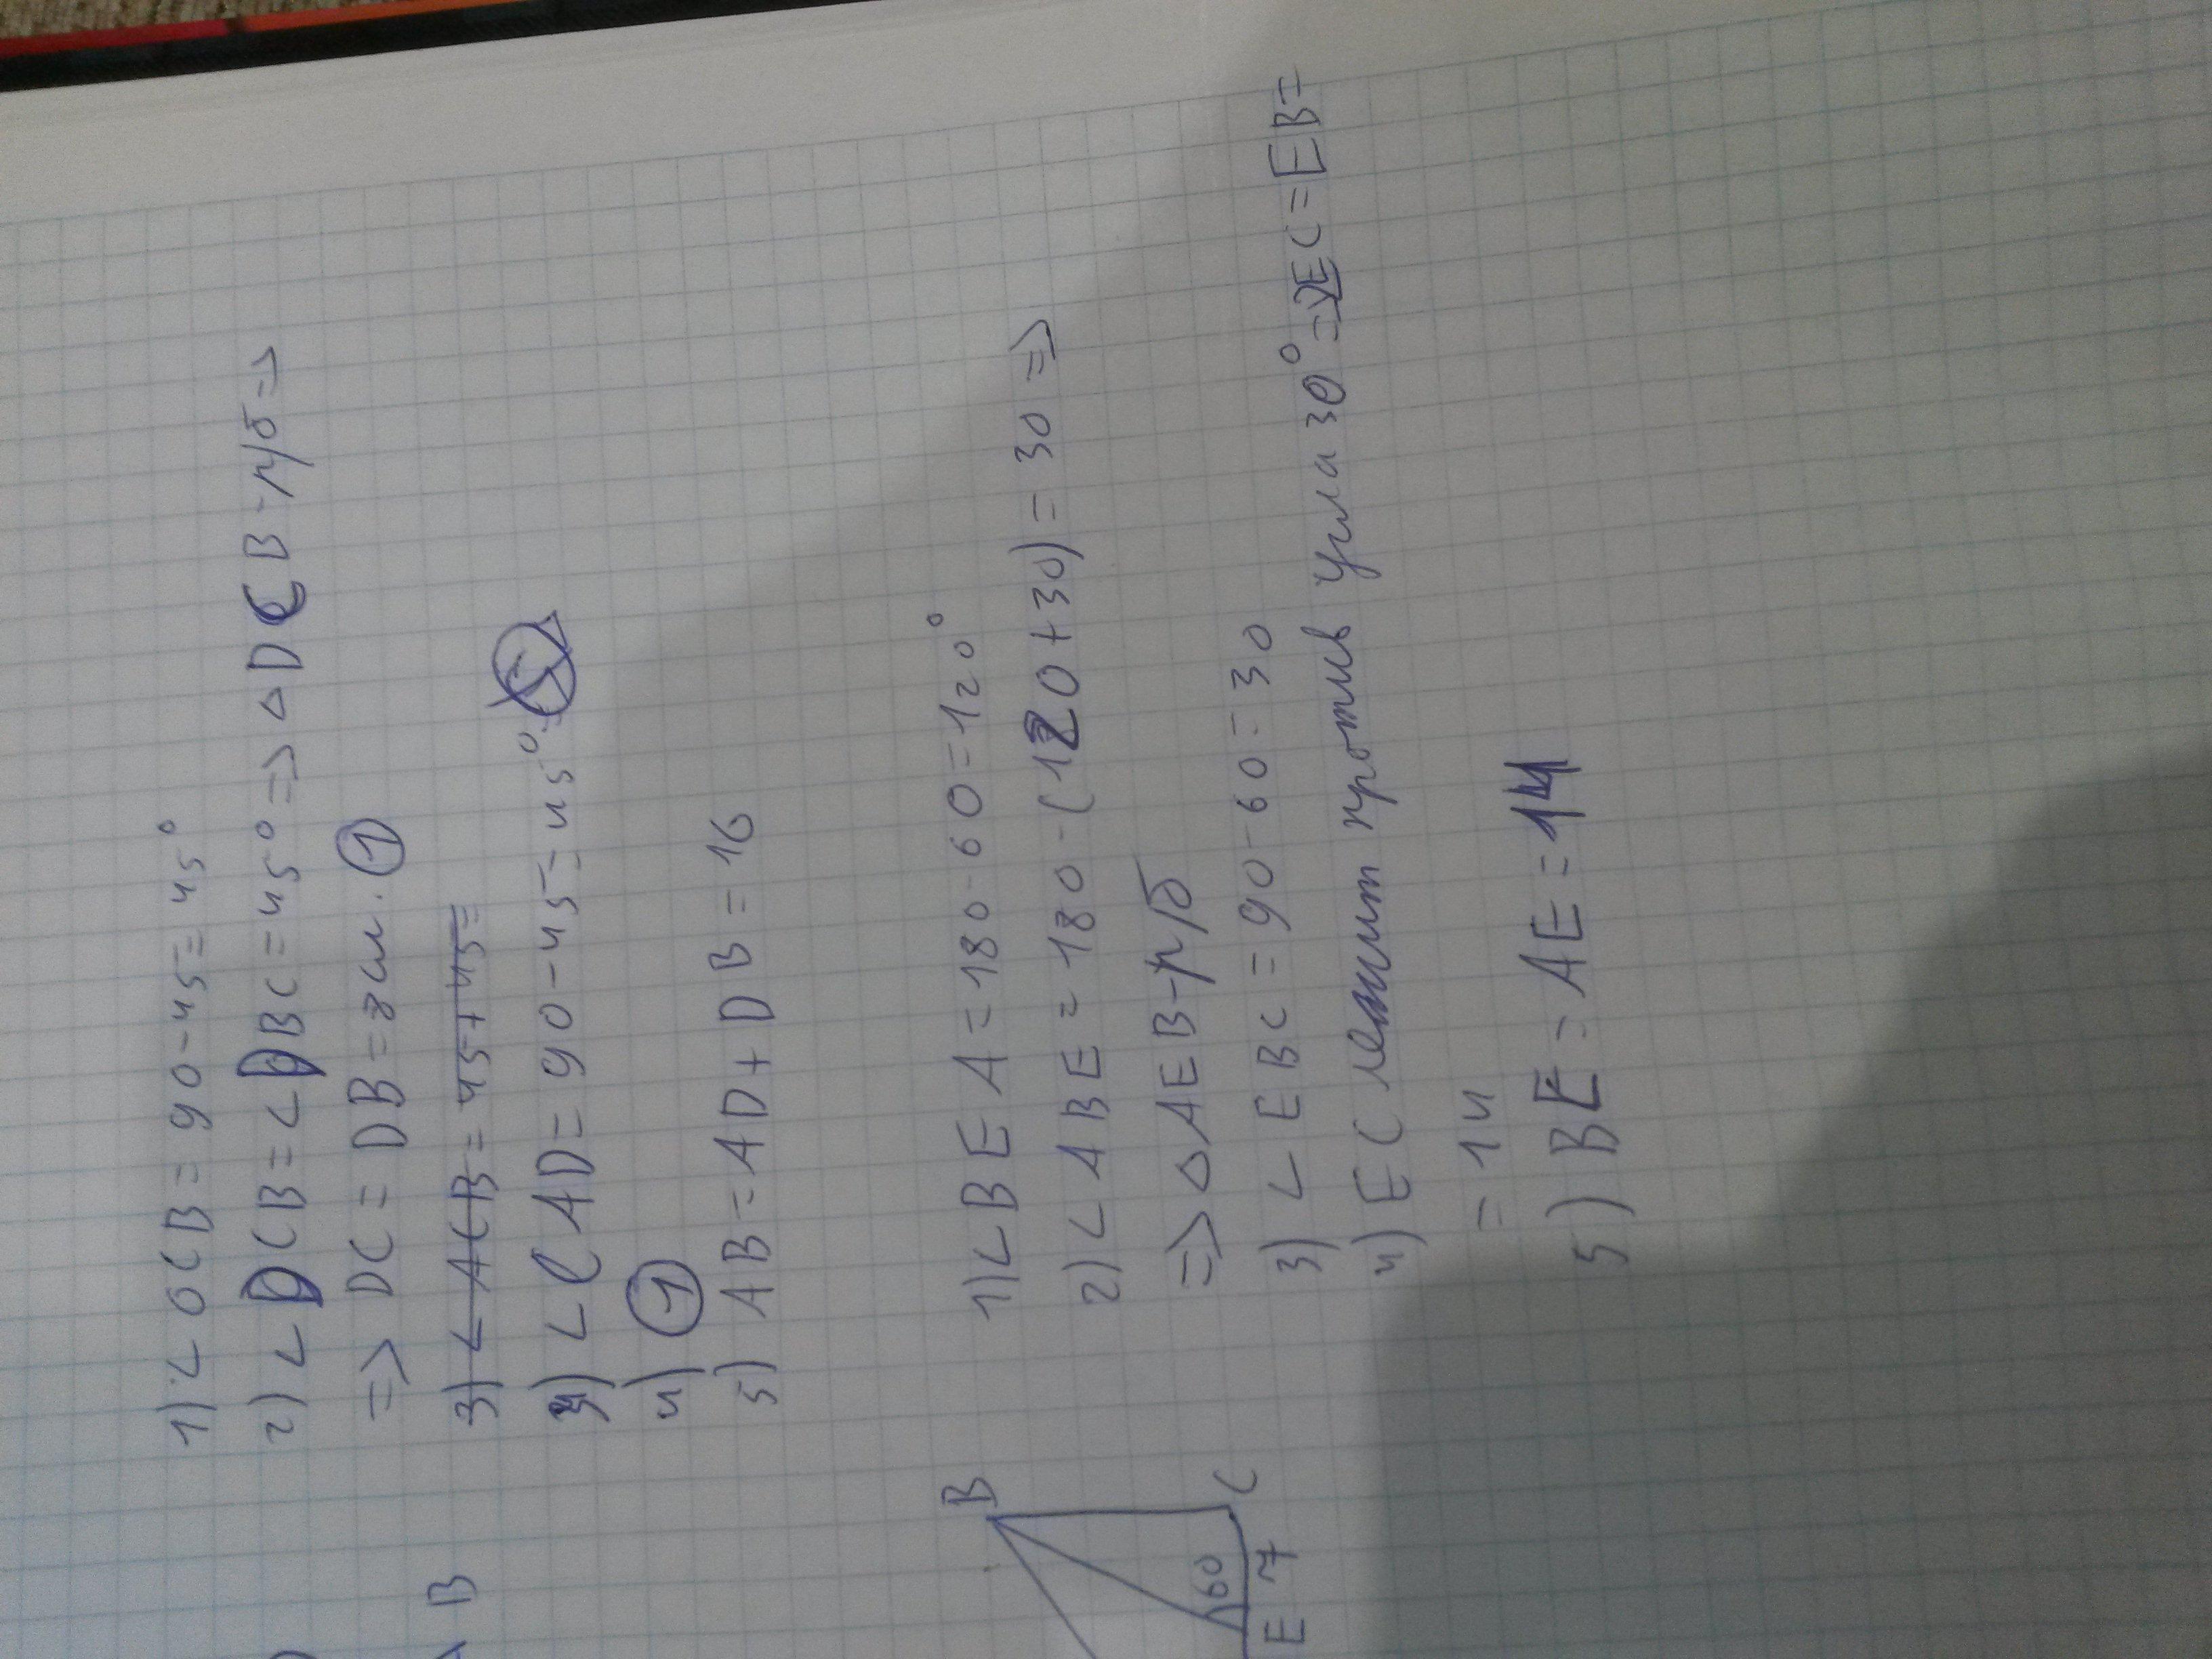 1) ∠OCB = 90-45 = 45°
2) ∠DCB = ∠DBC = 45° => △DCB-р/б =>
=> DC = DB = 8см. ①
3) ∠ACB = 45+45=
3) ∠CAD = 90-45 = 45°
4) ①
5) AB = AD + DB = 16
B
1) ∠BEA = 180-60 = 120°
2) ∠ABE = 180-(120+30) = 30 =>
=> △AEB-р/б
3) ∠EBC = 90-60 = 30
4) EC лежит против угла 30° => 2EC = EB =
= 14
5) BE = AE = 14
B
60
C
E 7